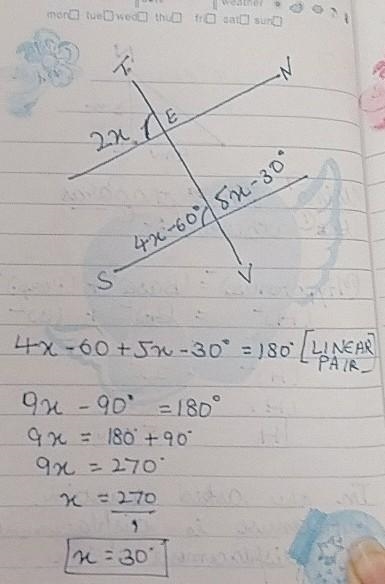 weather
mon tue wed thu fri sat sun
N
E
2x
5x-30°
4x-60°
S
V
4x-60+5x-30° =180° [LINEAR PAIR]
9x - 90° =180°
9x = 180°+90°
9x = 270°
x = 270
9
x = 30°